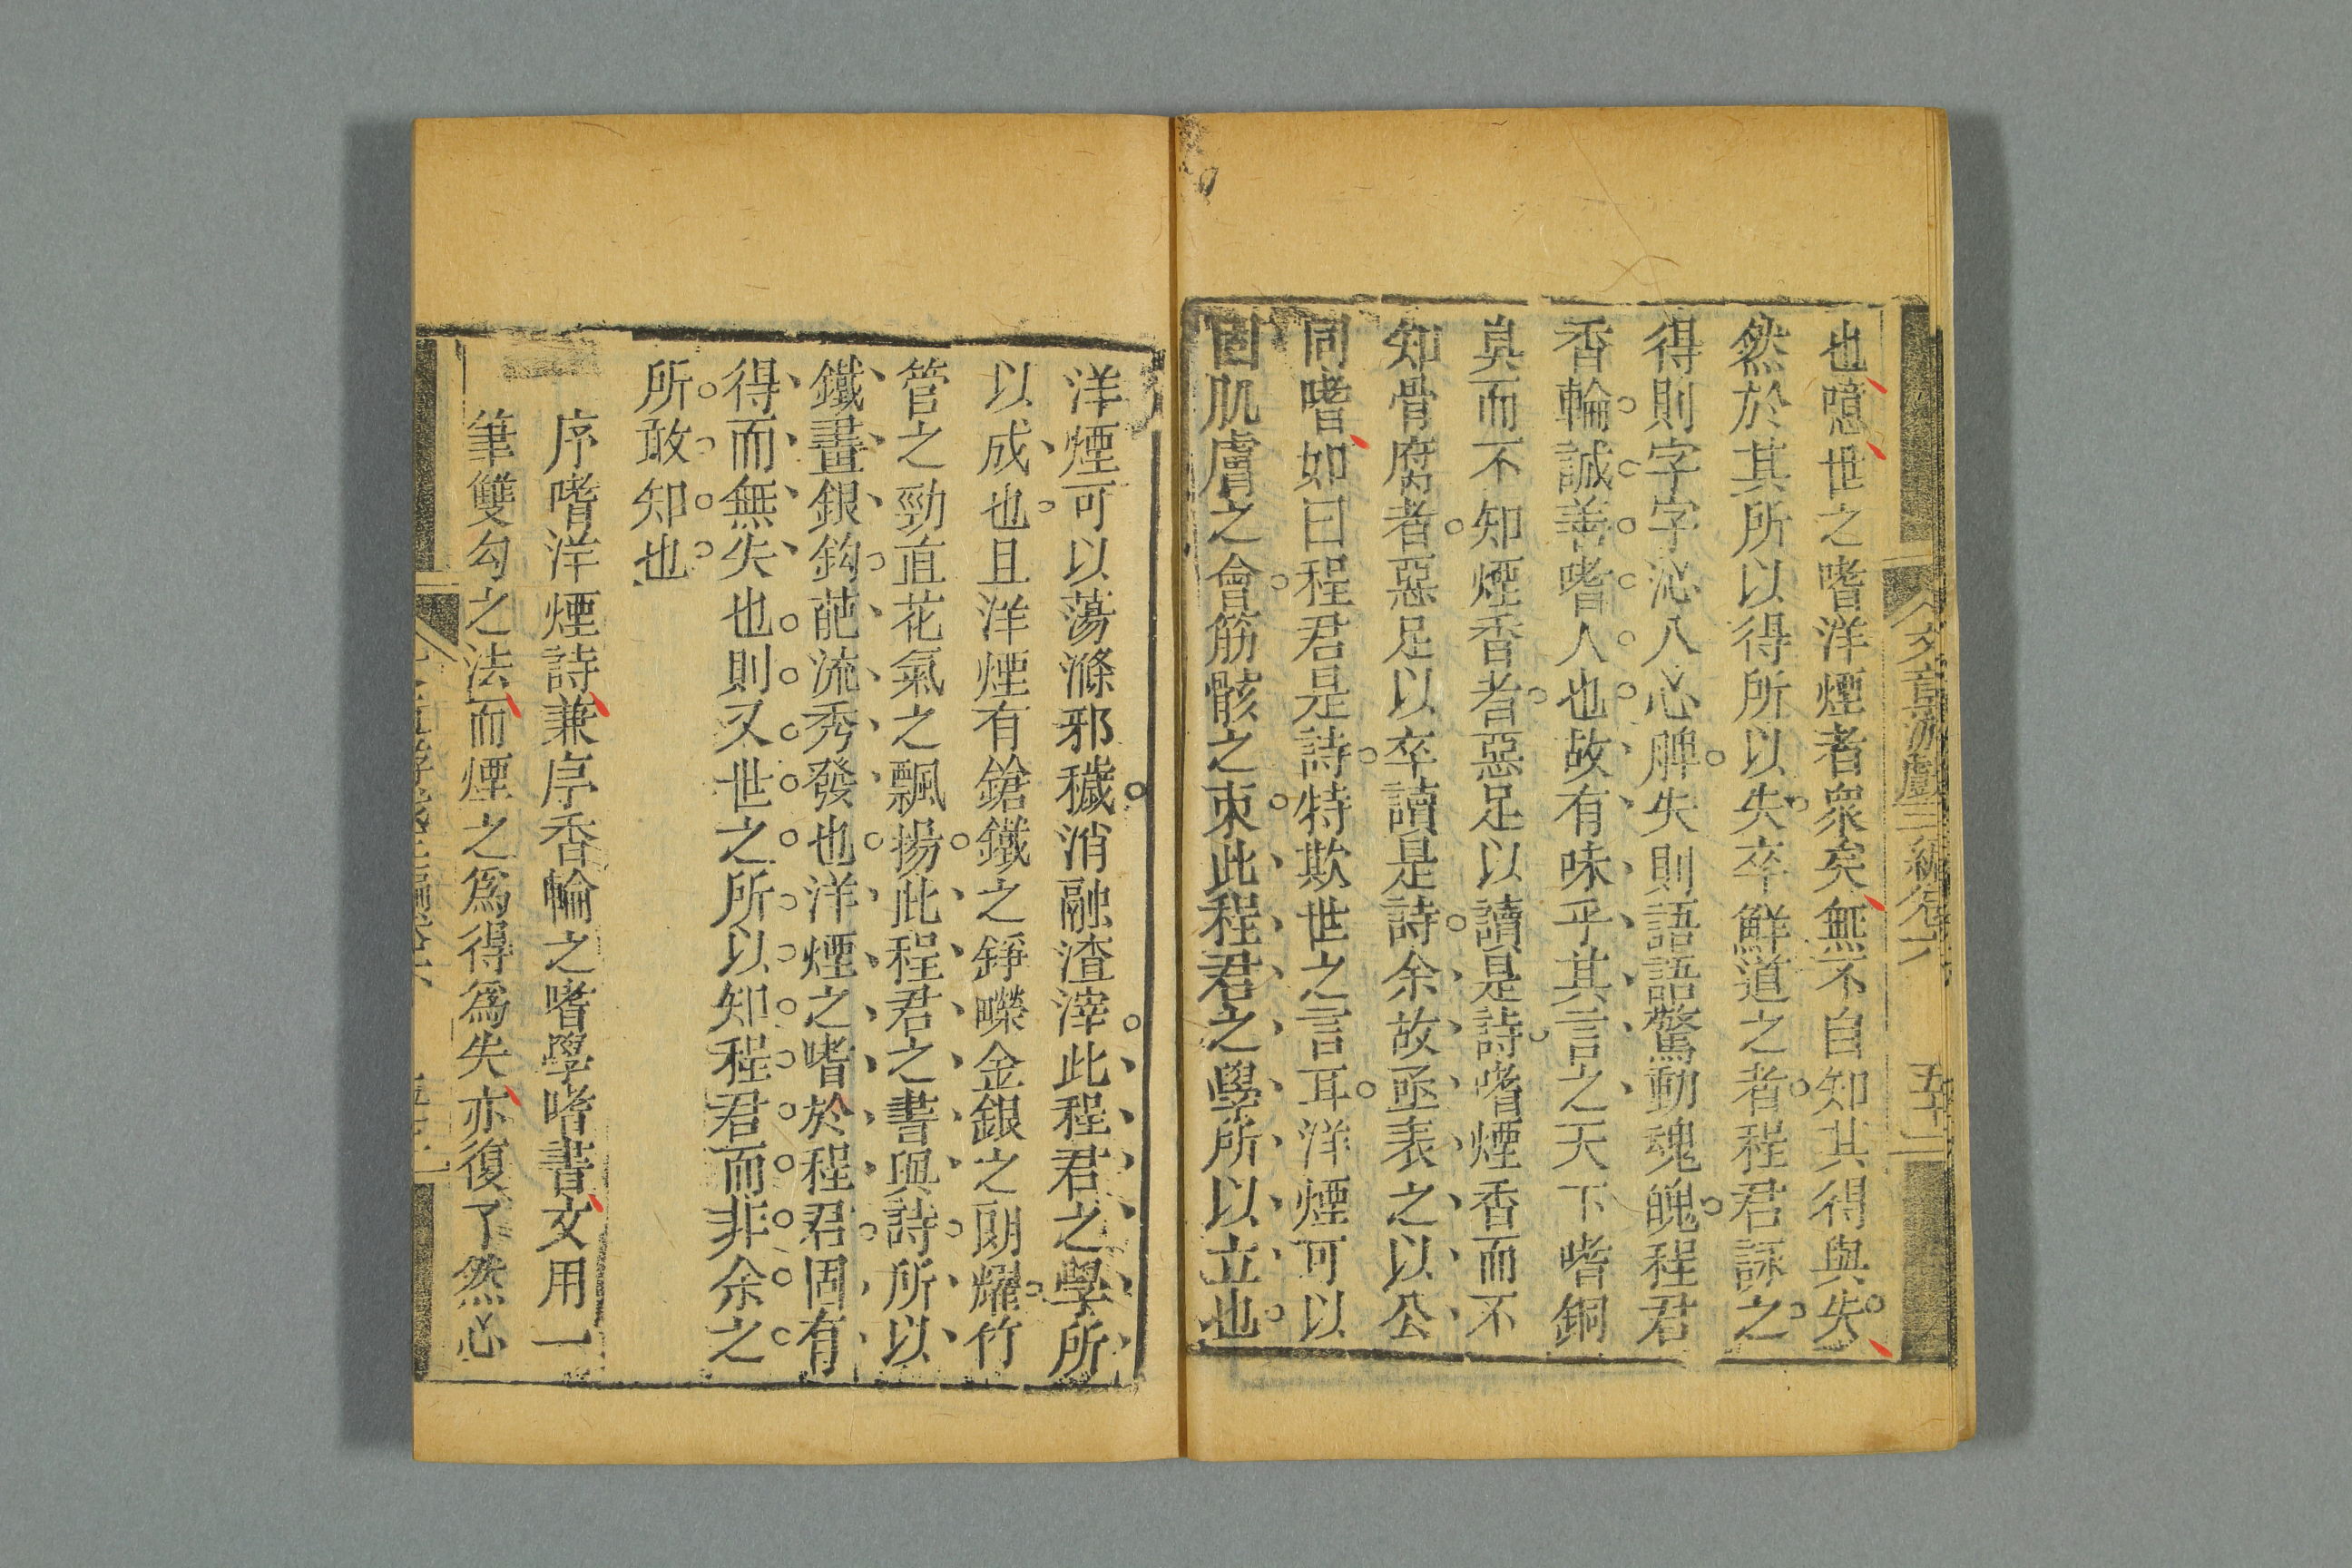 文章游戲三編卷六
五十一
也噫世之嗜洋煙者衆矣無不自知其得與失
然於其所以得所以失卒鮮道之者程君詠之
得則字字沁人心脾失則語語驚動魂魄程君
香輪誠善嗜人也故有味乎其言之天下嗜銅
臭而不知煙香者惡足以讀是詩嗜煙香而不
知骨腐者惡足以卒讀是詩余故亟表之以公
同嗜如曰程君是詩特欺世之言耳洋煙可以
固肌膚之會筋骸之束此程君之學所以立也
洋煙可以蕩滌邪穢消融渣滓此程君之學所
以成也且洋煙有鎗鐵之錚金銀之朗耀竹
管之勁直花氣之飄揚此程君之書與詩所以
鐵畫銀鈎葩流秀發也洋煙之嗜於程君固有
得而無失也則又世之所以知程君而非余之
所敢知也
序嗜洋煙詩兼序香輪之嗜學嗜書文用一
筆雙勾之法而煙之爲得爲失亦復了然心